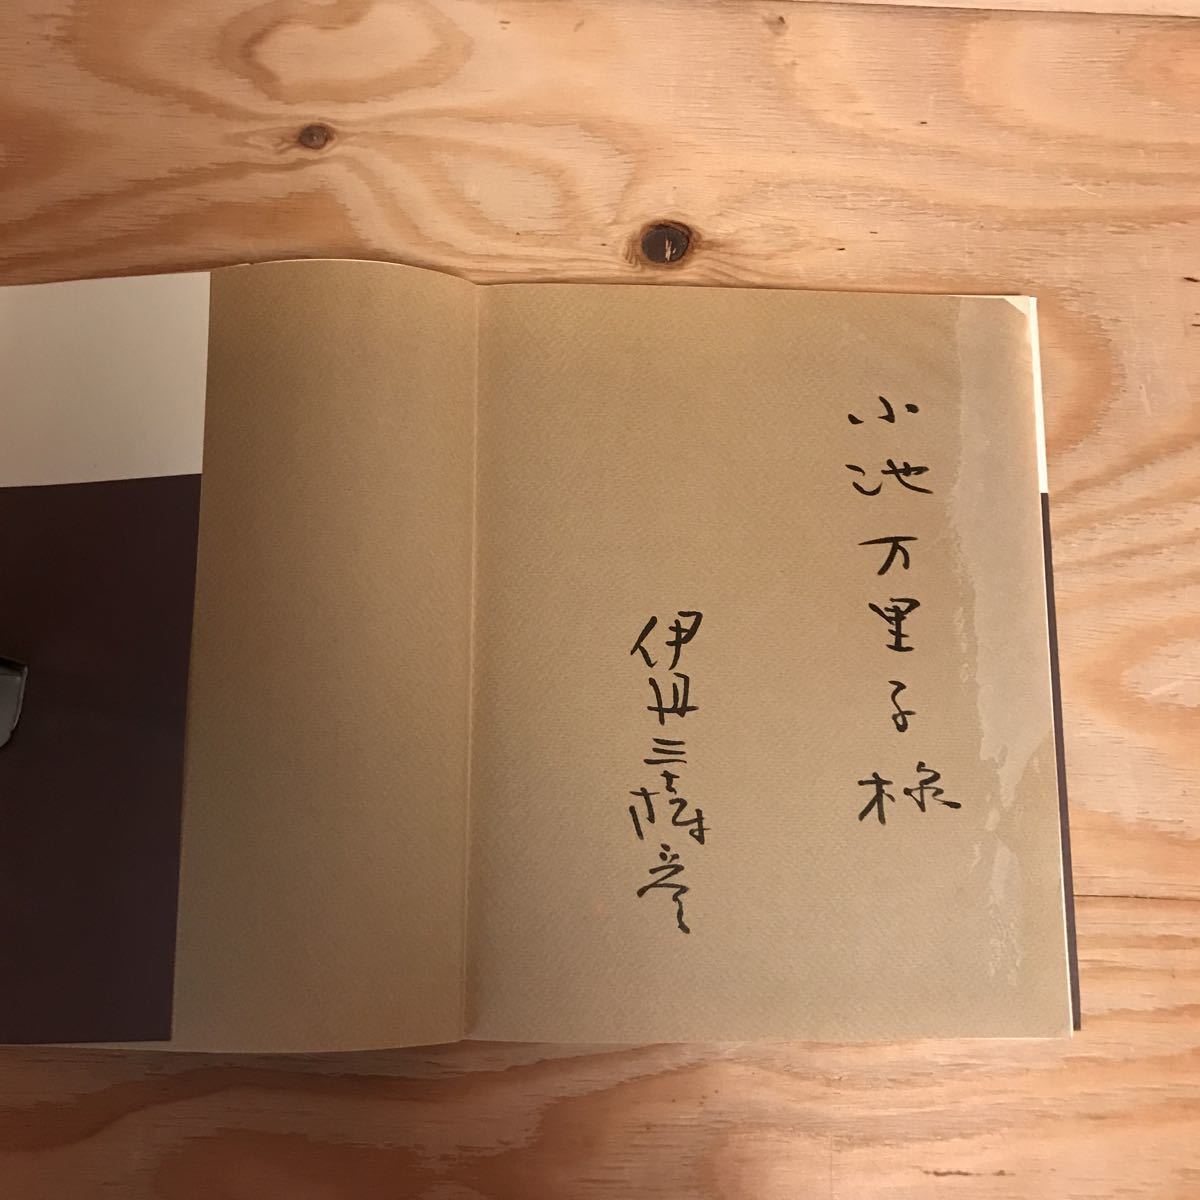 小池万里子様
伊丹三樹彦